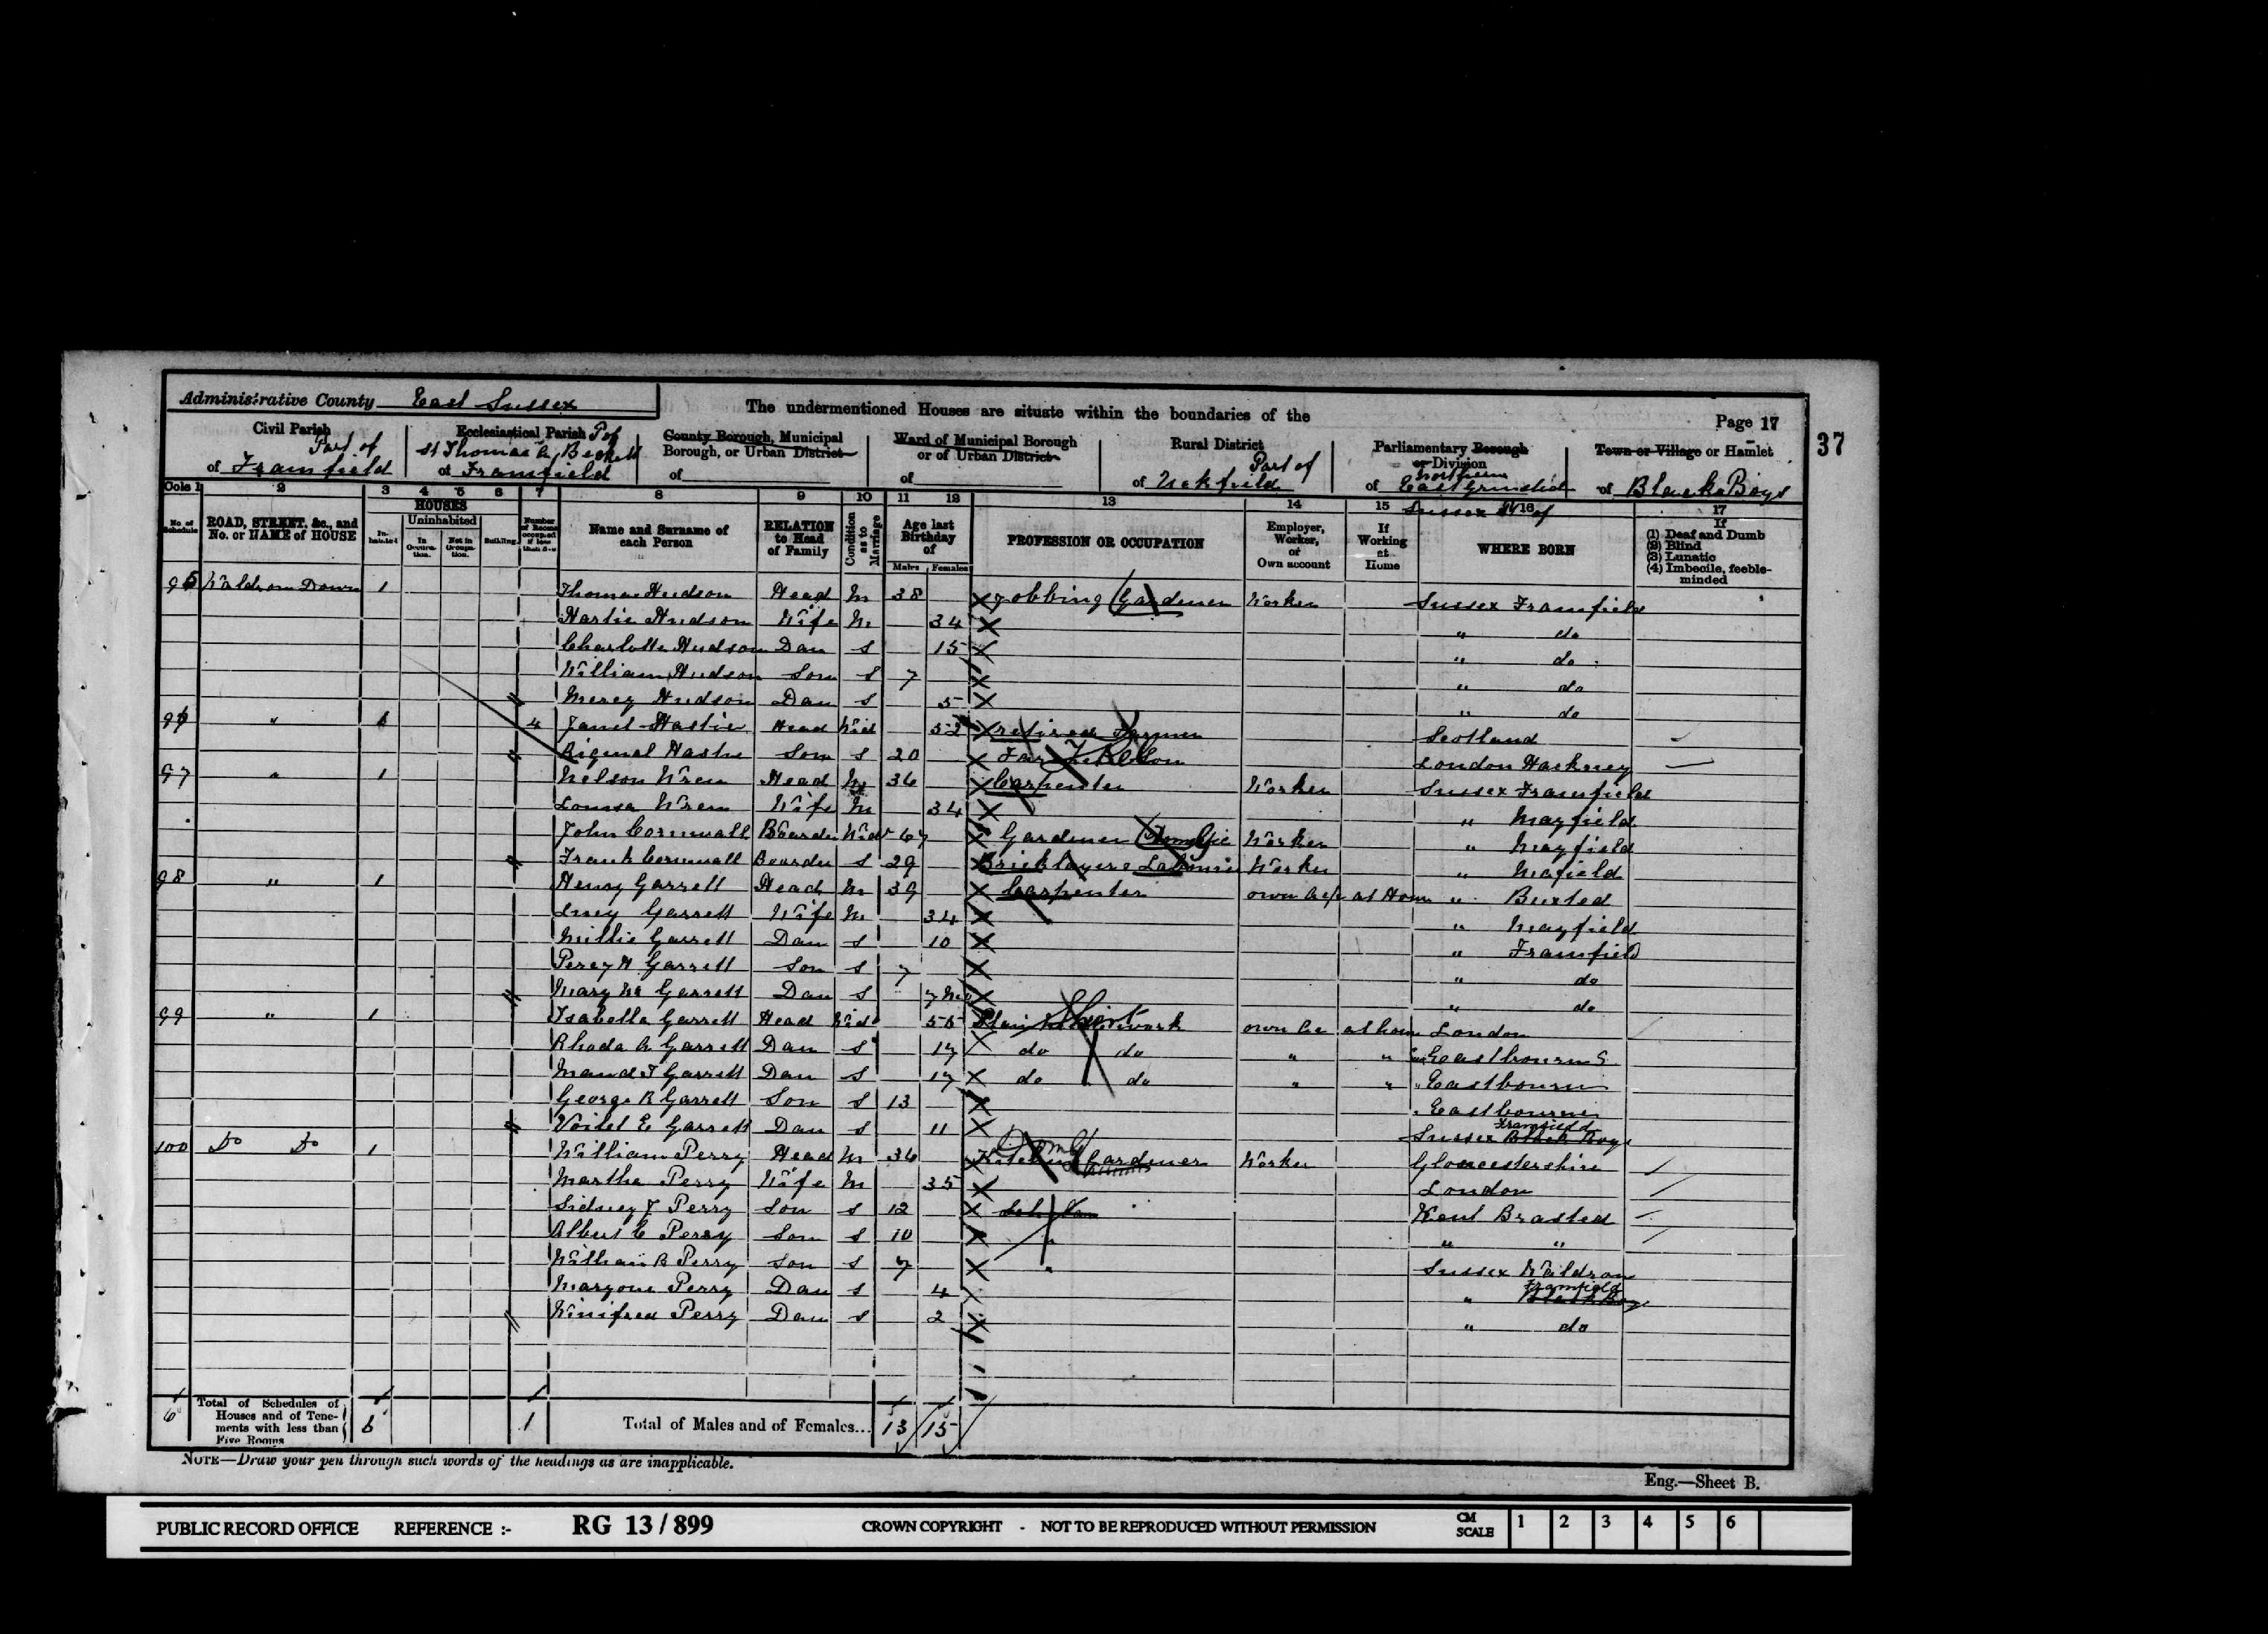 Administrative County East Sussex
The undermentioned Houses are situate within the boundaries of the
Page 17
37
Civil Parish Part of
of Framfield
Ecclesiastical Parish P of
St Thomas a Beckett
of Framfield
County Borough, Municipal
Borough, or Urban District
of
Ward of Municipal Borough
or of Urban District
of
Rural District
Part of
of Uckfield
Parliamentary Borough
or Division
Northern
of East Grinstead
Town or Village or Hamlet
of Black Boys
Cols 1 2 3 4 5 6 7 8 9 10 11 12 13 14 15 16 17
No. of Schedule
ROAD, STREET, &c., and No. or NAME of HOUSE
HOUSES
Inhabited
Uninhabited
In Occupation.
Not in Occupation.
Building.
Number of Rooms occupied if less than five
Name and Surname of each Person
RELATION to Head of Family
Condition as to Marriage
Age last Birthday of
Males Females
PROFESSION OR OCCUPATION
Employer, Worker, or Own account
If Working at Home
WHERE BORN
If
(1) Deaf and Dumb
(2) Blind
(3) Lunatic
(4) Imbecile, feeble-minded
95 Waldron Down 1 Thomas Hudson Head M 38 Jobbing Gardener Worker Sussex Framfield
Hastie Hudson Wife M 34 " do
Charlotte Hudson Dau S 15 " do
William Hudson Son S 7 " do
Mercy Hudson Dau S 5 " do
96 " 1 4 Janet Hastie Head Wid 52 retired Farmer Scotland
Riginal Hastie Son S 20 London Hackney
97 " 1 Nelson Wren Head M 36 Carpenter Worker Sussex Framfield
Louisa Wren Wife M 34 " Mayfield
John Cornwall Boarder Wid 67 Gardener Worker " Mayfield
Frank Cornwall Boarder S 29 Bricklayers Labourer Worker " Mafield
98 " 1 Henry Garrett Head M 39 Carpenter own a/c at Home " Buxted
Lucy Garrett Wife M 34 " Mayfield
Millie Garrett Dau S 10 " Framfield
Percy H Garrett Son S 7 " do
Mary M Garrett Dau S 7 mo " do
99 " 1 Isabella Garrett Head Wid 55 Plain needlework own ac at home London
Rhoda A Garrett Dau S 19 do do " " Eastbourne
Maud F Garrett Dau S 17 do do " " Eastbourne
George R Garrett Son S 13 Eastbourne
Voilet E Garrett Dau S 11 Sussex Black Boys Framfield
100 Do Do 1 William Perry Head M 36 Kitchen Gardener Worker Gloucestershire
Martha Perry Wife M 35 London
Sidney J Perry Son S 12 Scholar Kent Brasted
Albert C Perry Son S 10 " " "
William R Perry Son S 7 " Sussex Waldron
Maryone Perry Dau S 4 " Black Boys Framfield
Winifred Perry Dau S 2 " do
6 Total of Schedules of Houses and of Tenements with less than Five Rooms 6 1 Total of Males and of Females... 13 15
NOTE—Draw your pen through such words of the headings as are inapplicable.
Eng.—Sheet B.
PUBLIC RECORD OFFICE REFERENCE :- RG 13/899 CROWN COPYRIGHT - NOT TO BE REPRODUCED WITHOUT PERMISSION CM SCALE 1 2 3 4 5 6